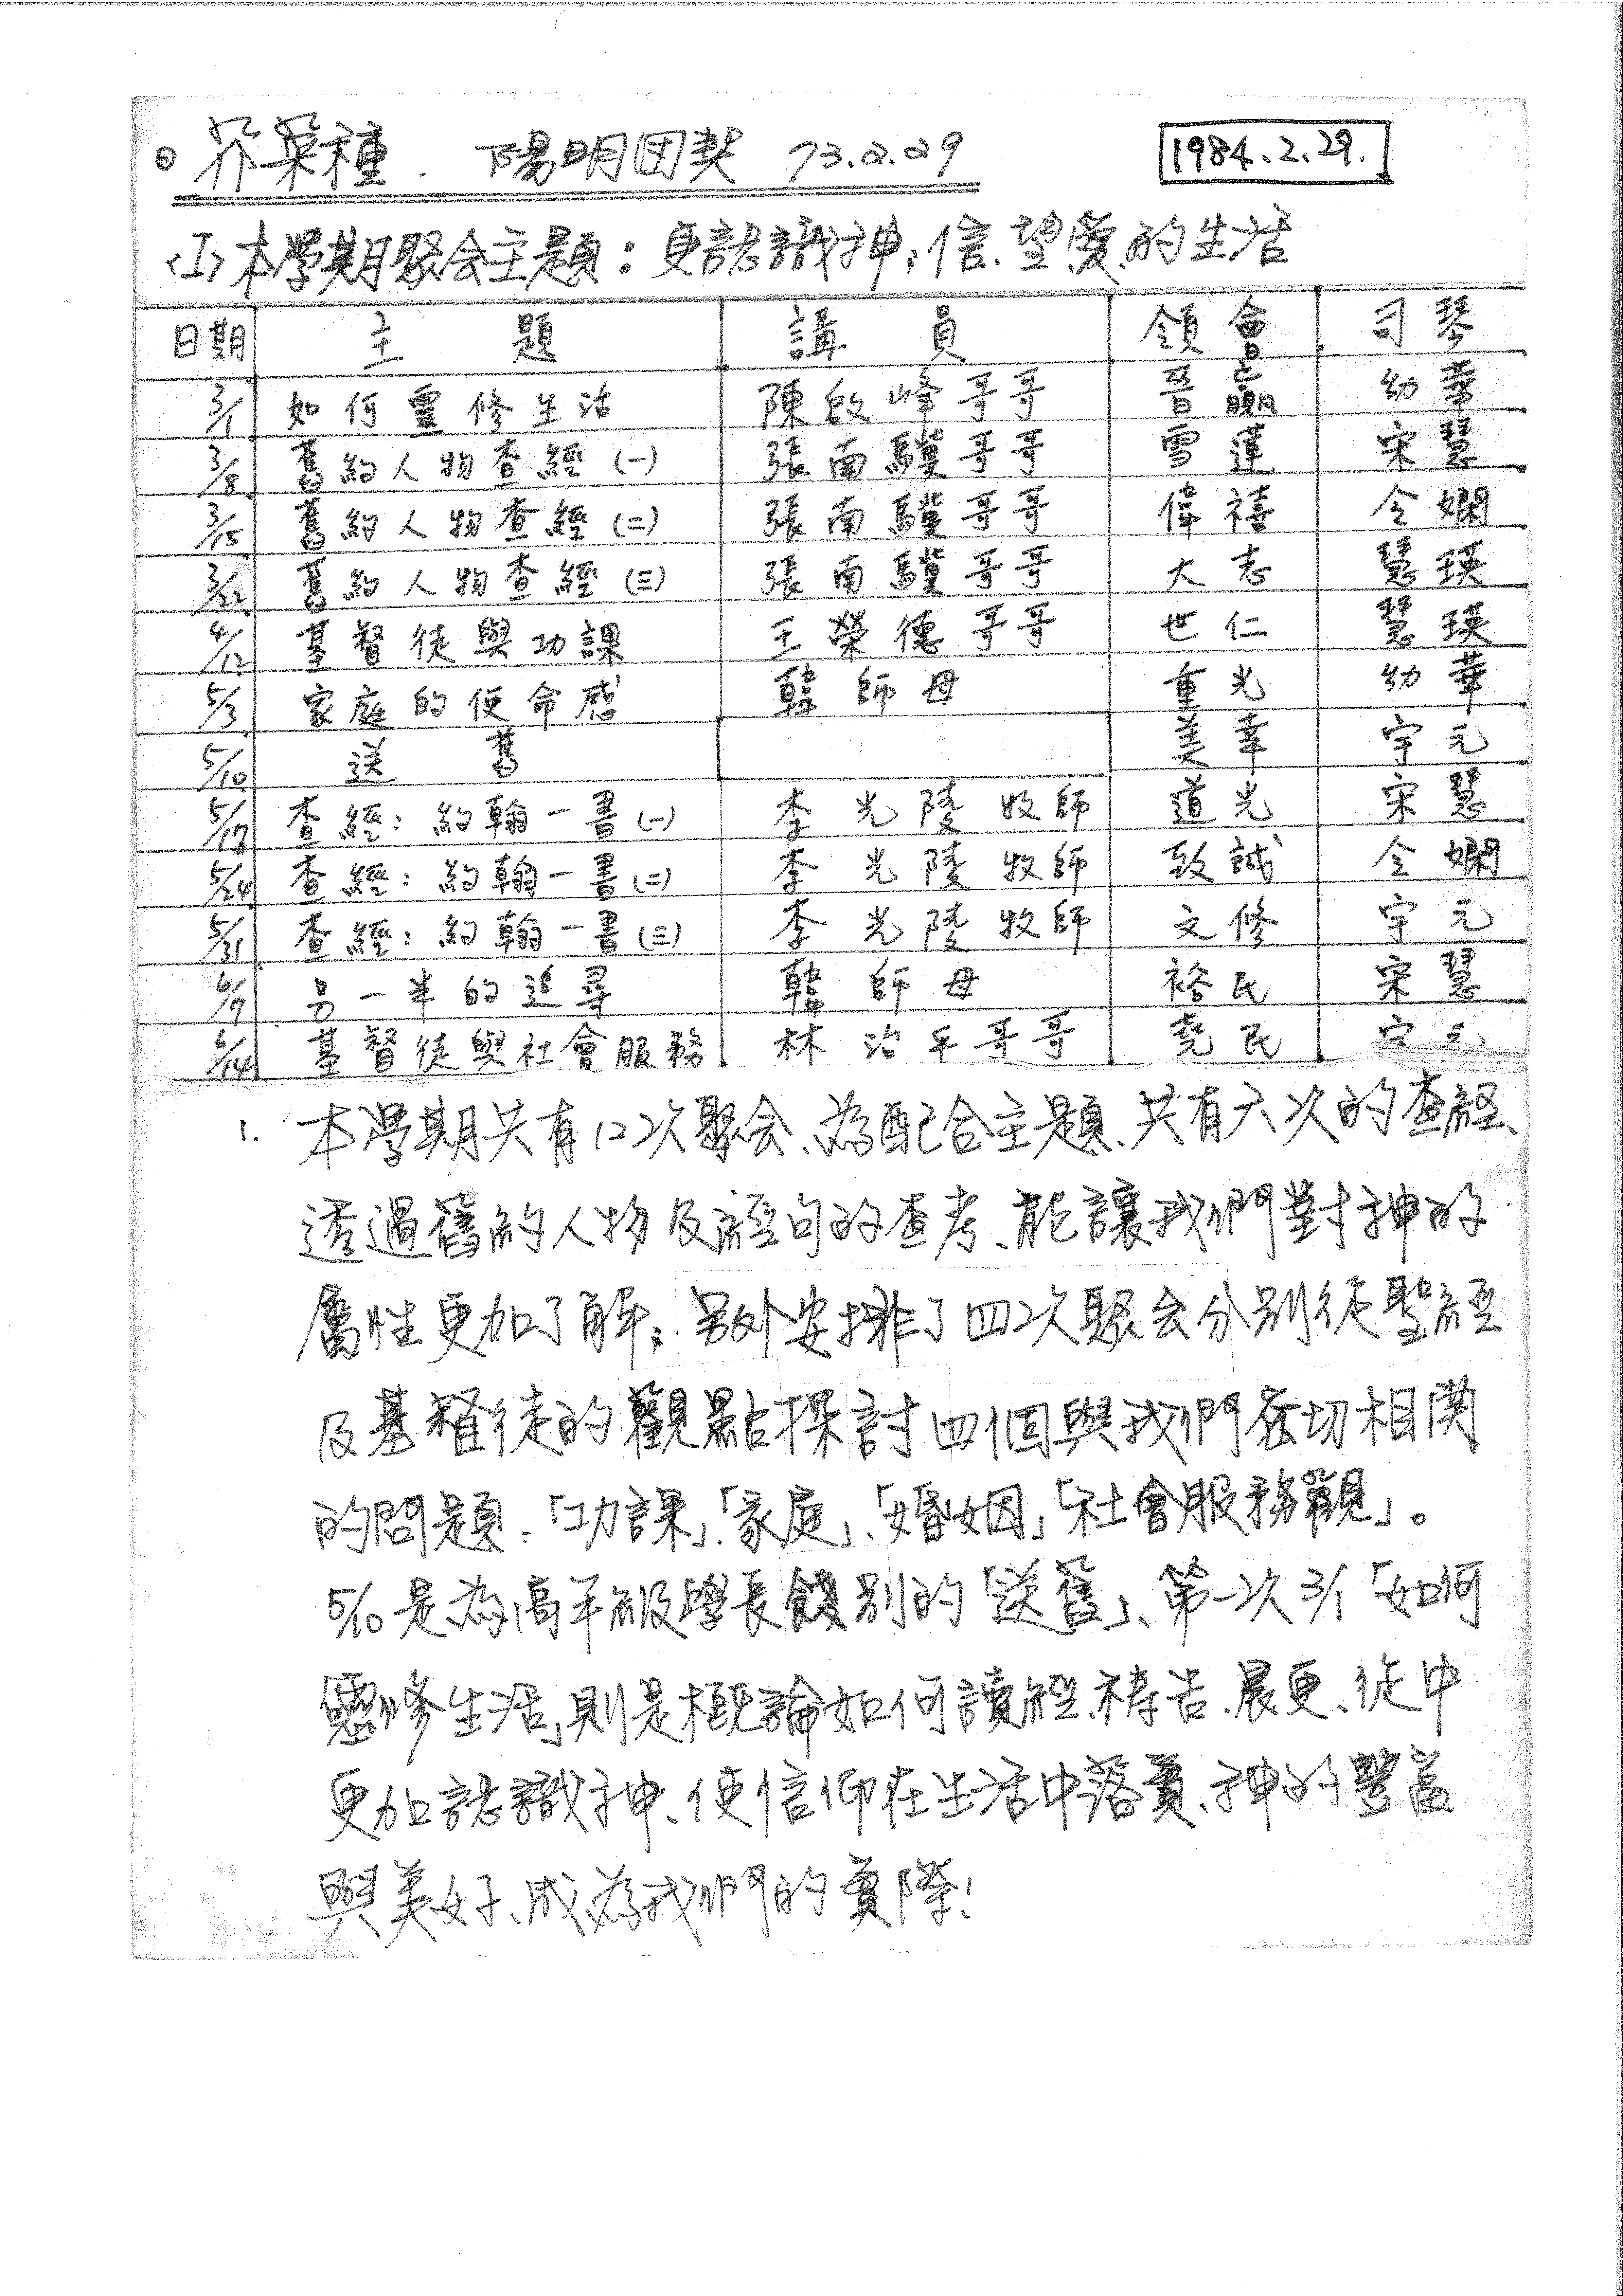 ◎ 芥菜種. 陽明团契 73.2.29
1984.2.29.
<I>本學期聚会主題：更認識神；信、望、愛的生活
日期 主題 講員 領會 司琴
3/1 如何靈修生活 陳啟峰哥哥 晉贏 幼華
3/8 舊約人物查經(一) 張南驥哥哥 雪蓮 宋慧
3/15 舊約人物查經(二) 張南驥哥哥 偉禧 令嫻
3/22 舊約人物查經(三) 張南驥哥哥 大志 慧瑛
4/12 基督徒與功課 王榮德哥哥 世仁 慧瑛
5/3 家庭的使命感 韓師母 重光 幼華
5/10 送舊 美幸 宇元
5/17 查經：約翰一書(一) 李光陵牧師 道光 宋慧
5/24 查經：約翰一書(二) 李光陵牧師 致誠 令嫻
5/31 查經：約翰一書(三) 李光陵牧師 文修 宇元
6/7 另一半的追尋 韓師母 裕民 宋慧
6/14 基督徒與社會服務 林治平哥哥 堯民 宇元
1. 本學期共有12次聚会、為配合主題、共有六次的查經、
透過舊約人物及經句的查考、能讓我們對神的
屬性更加了解；另外安排了四次聚会分別從聖經
及基督徒的觀點探討四個與我們密切相関
的問題：「功課」、「家庭」、「婚姻」「社會服務觀」。
5/10是為高年級學長餞別的「送舊」、第一次3/1「如何
靈修生活」則是概論如何讀經、禱告、晨更、從中
更加認識神、使信仰在生活中落實、神的豐富
與美好、成為我們的實際！